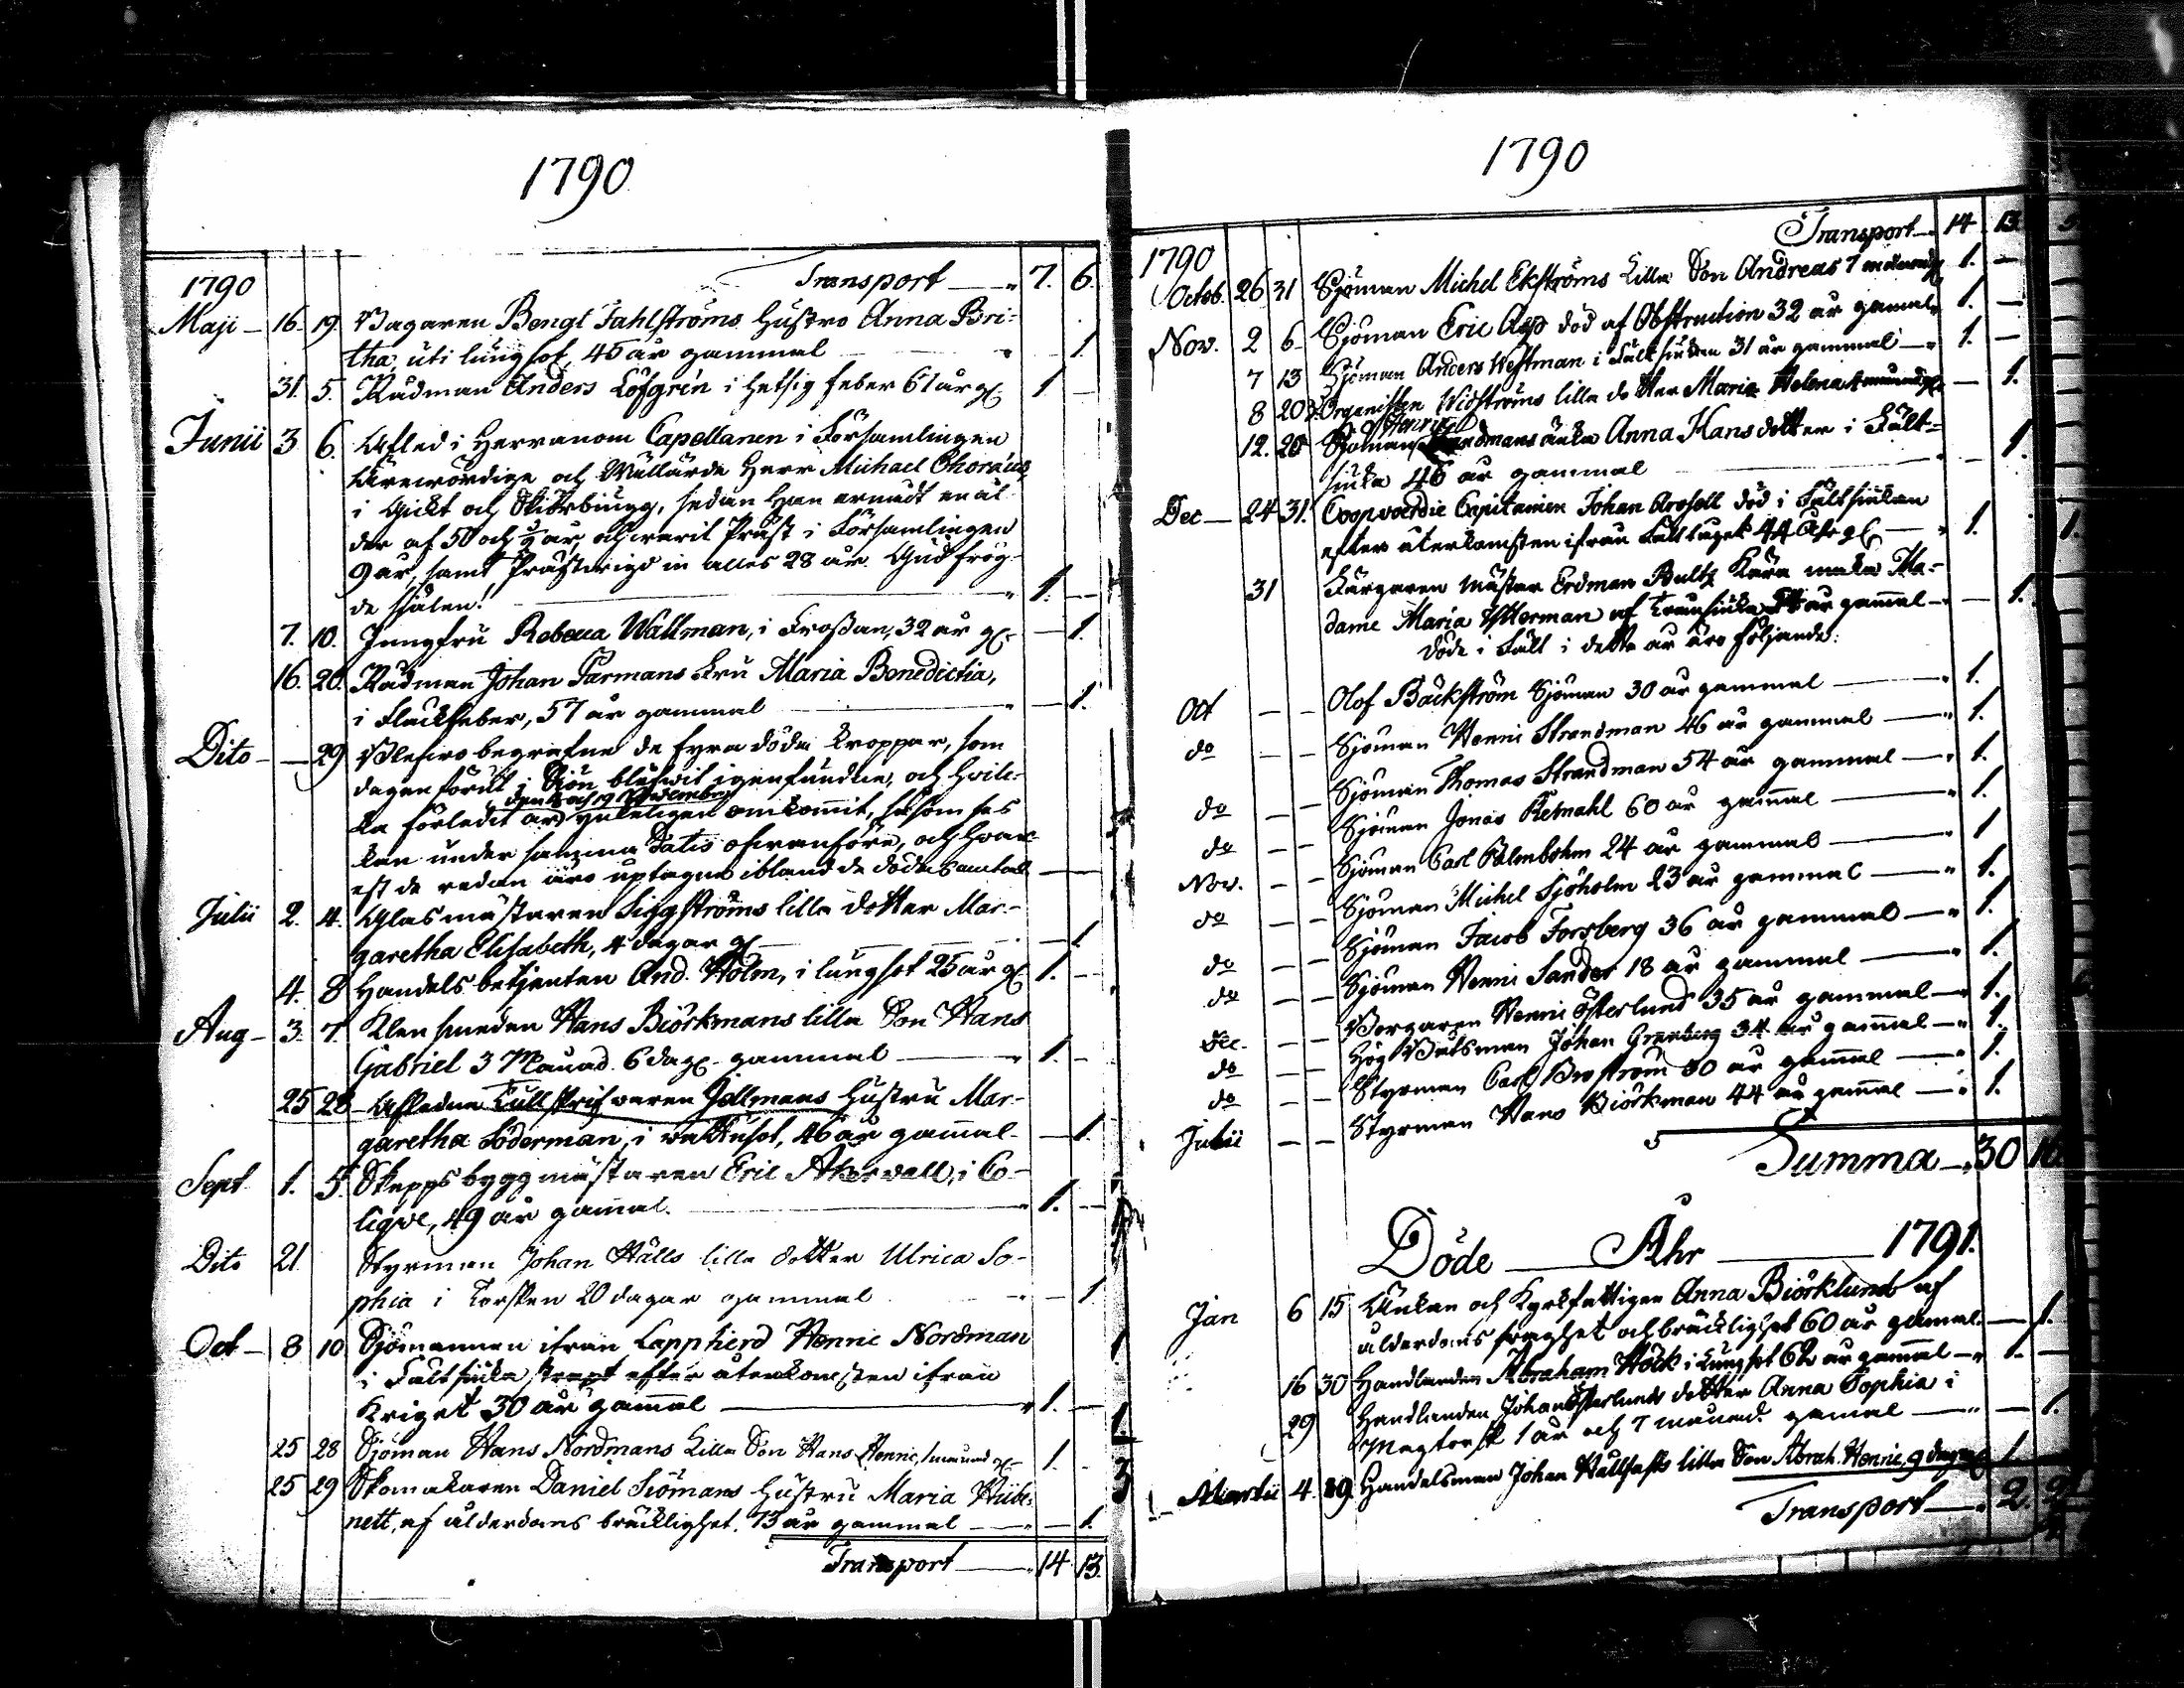 1790
Transport — 7. 6.
1790
Maji — 16. 19. Bagaren Bengt Fahlströms Hustro Anna Bri-
tha, uti lungsot, 45 år gammal 1.
31. 5. Rådman Anders Löfgrén i hetsig feber 61 år gl. 1.
Junii 3 6. Afled i Herranom Capellanen i Församlingen
Ärewördige och Wällärde Herr Michael Choræus,
i Gickt och Skiörbiugg, sedan han arnådt en ål-
der af 50 och ½ år, och warit Präst i Församlingen
9 år, samt Prästwigd in alles 28 år. Gud frög-
de siälen! 1.
7. 10. Jungfru Rebecca Wallman, i Frossan, 32 år gl. 1.
16. 20. Rådman Johan Parmans Fru Maria Benedictia,
i Fläckfeber, 57 år gammal 1.
Dito — 29 Blefwo begrafne de fyra döda kroppar, som
dagen förut i Sjön blifwit igenfundne, och hwil-
den och 19 November
ka förledit år ynkeligen omkommit, såsom ses
kan under samma Datis ofwanföre, och hwar-
est de redan äro uptagne ibland de dödas antal
Julii 2. 4. Glasmästaren Siggströms lilla dotter Mar-
garetha Elisabeth, 4 dagar gl. 1.
4. 8 Handels betjenten And. Holm, i lungsot 25 år gl. 1.
Aug — 3. 7. Klensmeden Hans Biörkmans lilla Son Hans
Gabriel 3 Månad. 6 dag. gammal 1.
25 28 Afledne Tullskrifwaren Jellmans Hustru Mar-
garetha Söderman, i wattusot, 46 år gamal 1.
Sept. 1. 5. Skeppsbyggmästaren Eric Åkervall, i Co-
lique, 49 år gamal. 1.
Dito 21 Styrman Johan Hälls lilla dotter Ulrica So-
phia i Torsken 20 dagar gammal 1
Oct — 8 10 Sjömannen ifrån Lappfierd Henric Nordman
i Fältsiuka strapt efter återkomsten ifrån
Kriget 30 år gamal 1.
25 28 Sjöman Hans Nordmans Lilla Son Hans Henric, 1 månad gl. 1.
25 29 Skomakaren Daniel Siömans Hustru Maria Hübi-
nett, af ålderdoms bräcklighet. 73 år gammal 1.
Transport — 14 13.
1790
Transport — 14 13.
1790
Octob. 26 31 Sjöman Michel Ekströms Lilla Son Andreas 7 månad gl. 1.
Nov. 2 6 Sjöman Eric Alg död af Obstruction 32 år gamal 1.
7 13 Sjöman Anders Westman i Fältsiukan 31 år gammal 1.
8 20 Organisten Widströms lilla dotter Maria Helena 4 månad gl. 1.
Henric
12. 20 Sjöman Strandmans änka Anna Hansdotter i Fält-
siuka 46 år gammal 1.
Dec — 24 31. Coopvaerdie Capitainen Johan Arosell död i Fältsiukan
efter återkomsten ifrån Fälttuget 44 Åhr gl. 1.
31 Färgaren Mäster Erdman Bultz Kära maka Ma-
dame Maria Ytterman af Framsiuka år gamal 1.
Döde i Fält i detta år äro följande:
Oct — — Olof Bäckström Sjöman 30 år gammal 1.
do — — Sjöman Henric Strandman 46 år gammal 1.
do — — Sjöman Thomas Strandman 54 år gammal 1.
do — — Sjöman Jonas Remahl 60 år gamal 1.
Nov. — — Sjöman Carl Palmbohm 24 år gammal 1
do — — Sjöman Michel Sjöholm 23 år gammal 1.
do — — Sjöman Jacob Forsberg 36 år gammal 1.
do — — Sjöman Henric Sander 18 år gammal 1.
Dec. — — Borgaren Henric Österlund 35 år gammal 1.
do — — Hög Båtsman Johan Grönberg 34 år gamal 1.
do — — Styrman Carl Broström 30 år gamal 1.
Julii — — Styrman Hans Biörkman 44 år gamal 1.
Summa — 30 16.
Döde — Åhr — 1791.
Jan 6 15 Enkan och Kyrkfattigen Anna Biörklund af
ålderdoms swaghet och bräcklighet 60 år gamal 1.
16 30 Handlanden Abraham Höök i Lungsot 62 år gamal 1.
29 Handlanden Johan Österlunds dotter Anna Sophia i
Magtorsk 1 år och 7 månad. gamal 1.
Martii 4. 29. Handelsman Johan Hallfasts lilla Son Abrah. Henric, 9 dag gl. 1.
Transport — 2. 2.